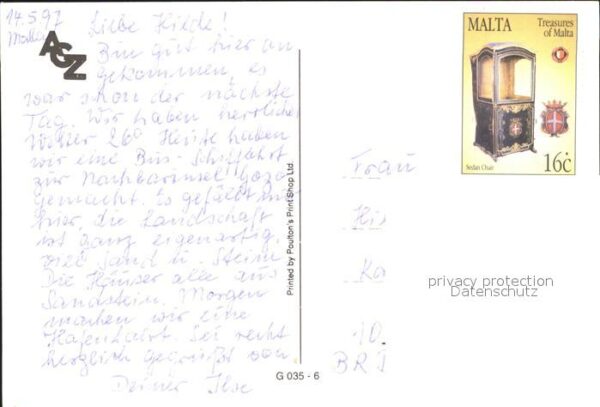 14.5.97
Malta
Liebe Hilde!
Bin gut hier an
gekommen, es
war schon der nächste
Tag. Wir haben herrliches
Wetter 26° Heute haben
wir eine Bus-Schiffahrt
zur Nachbarinsel Gozo
gemacht. Es gefällt mir
hier, die Landschaft
ist ganz eigenartig,
viel Sand u. Stein
Die Häuser alle aus
Sandstein. Morgen
machen wir eine
Hafenfahrt. Sei recht
herzlich gegrüßt von
Deiner Ilse
AGZ
Printed by Poulton's Print Shop Ltd.
G 035 - 6
MALTA
Treasures
of Malta
Sedan Chair
16c
Frau
Hi
Ka
10
BRD
privacy protection
Datenschutz